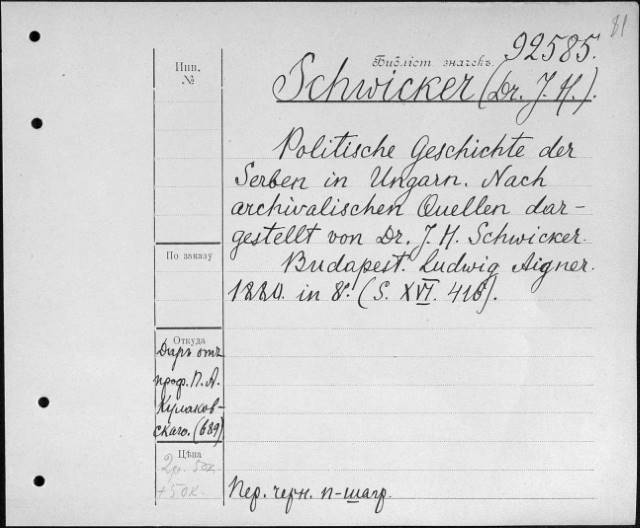 81
92585.
Библіот. значекъ.
Инв.
№
Schwicker (Dr. J. H.).
Politische Geschichte der
Serben in Ungarn. Nach
archivalischen Quellen dar-
gestellt von Dr. J. H. Schwicker.
Budapest. Ludwig Aigner.
1880. in 8º. (S. XVI. 416).
По заказу
Откуда
Даръ отъ
проф. П. А.
Кулаков-
скаго. (689)
Цѣна
2р. 50к.
+50к.
Пер. черн. п-шагр.